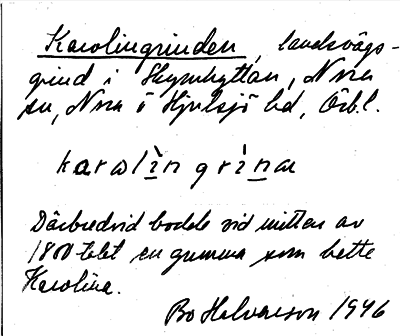 Karolingrinden, landsvägs-
grind i Skymhyttan, Nora
sn, Nora ö Hjulsjö bd, Örb.l.
karolìn grìnan
Därbredvid bodde vid mitten av
1800 talet en gumma som hette
Karolina.
Bo Halvarson 1946